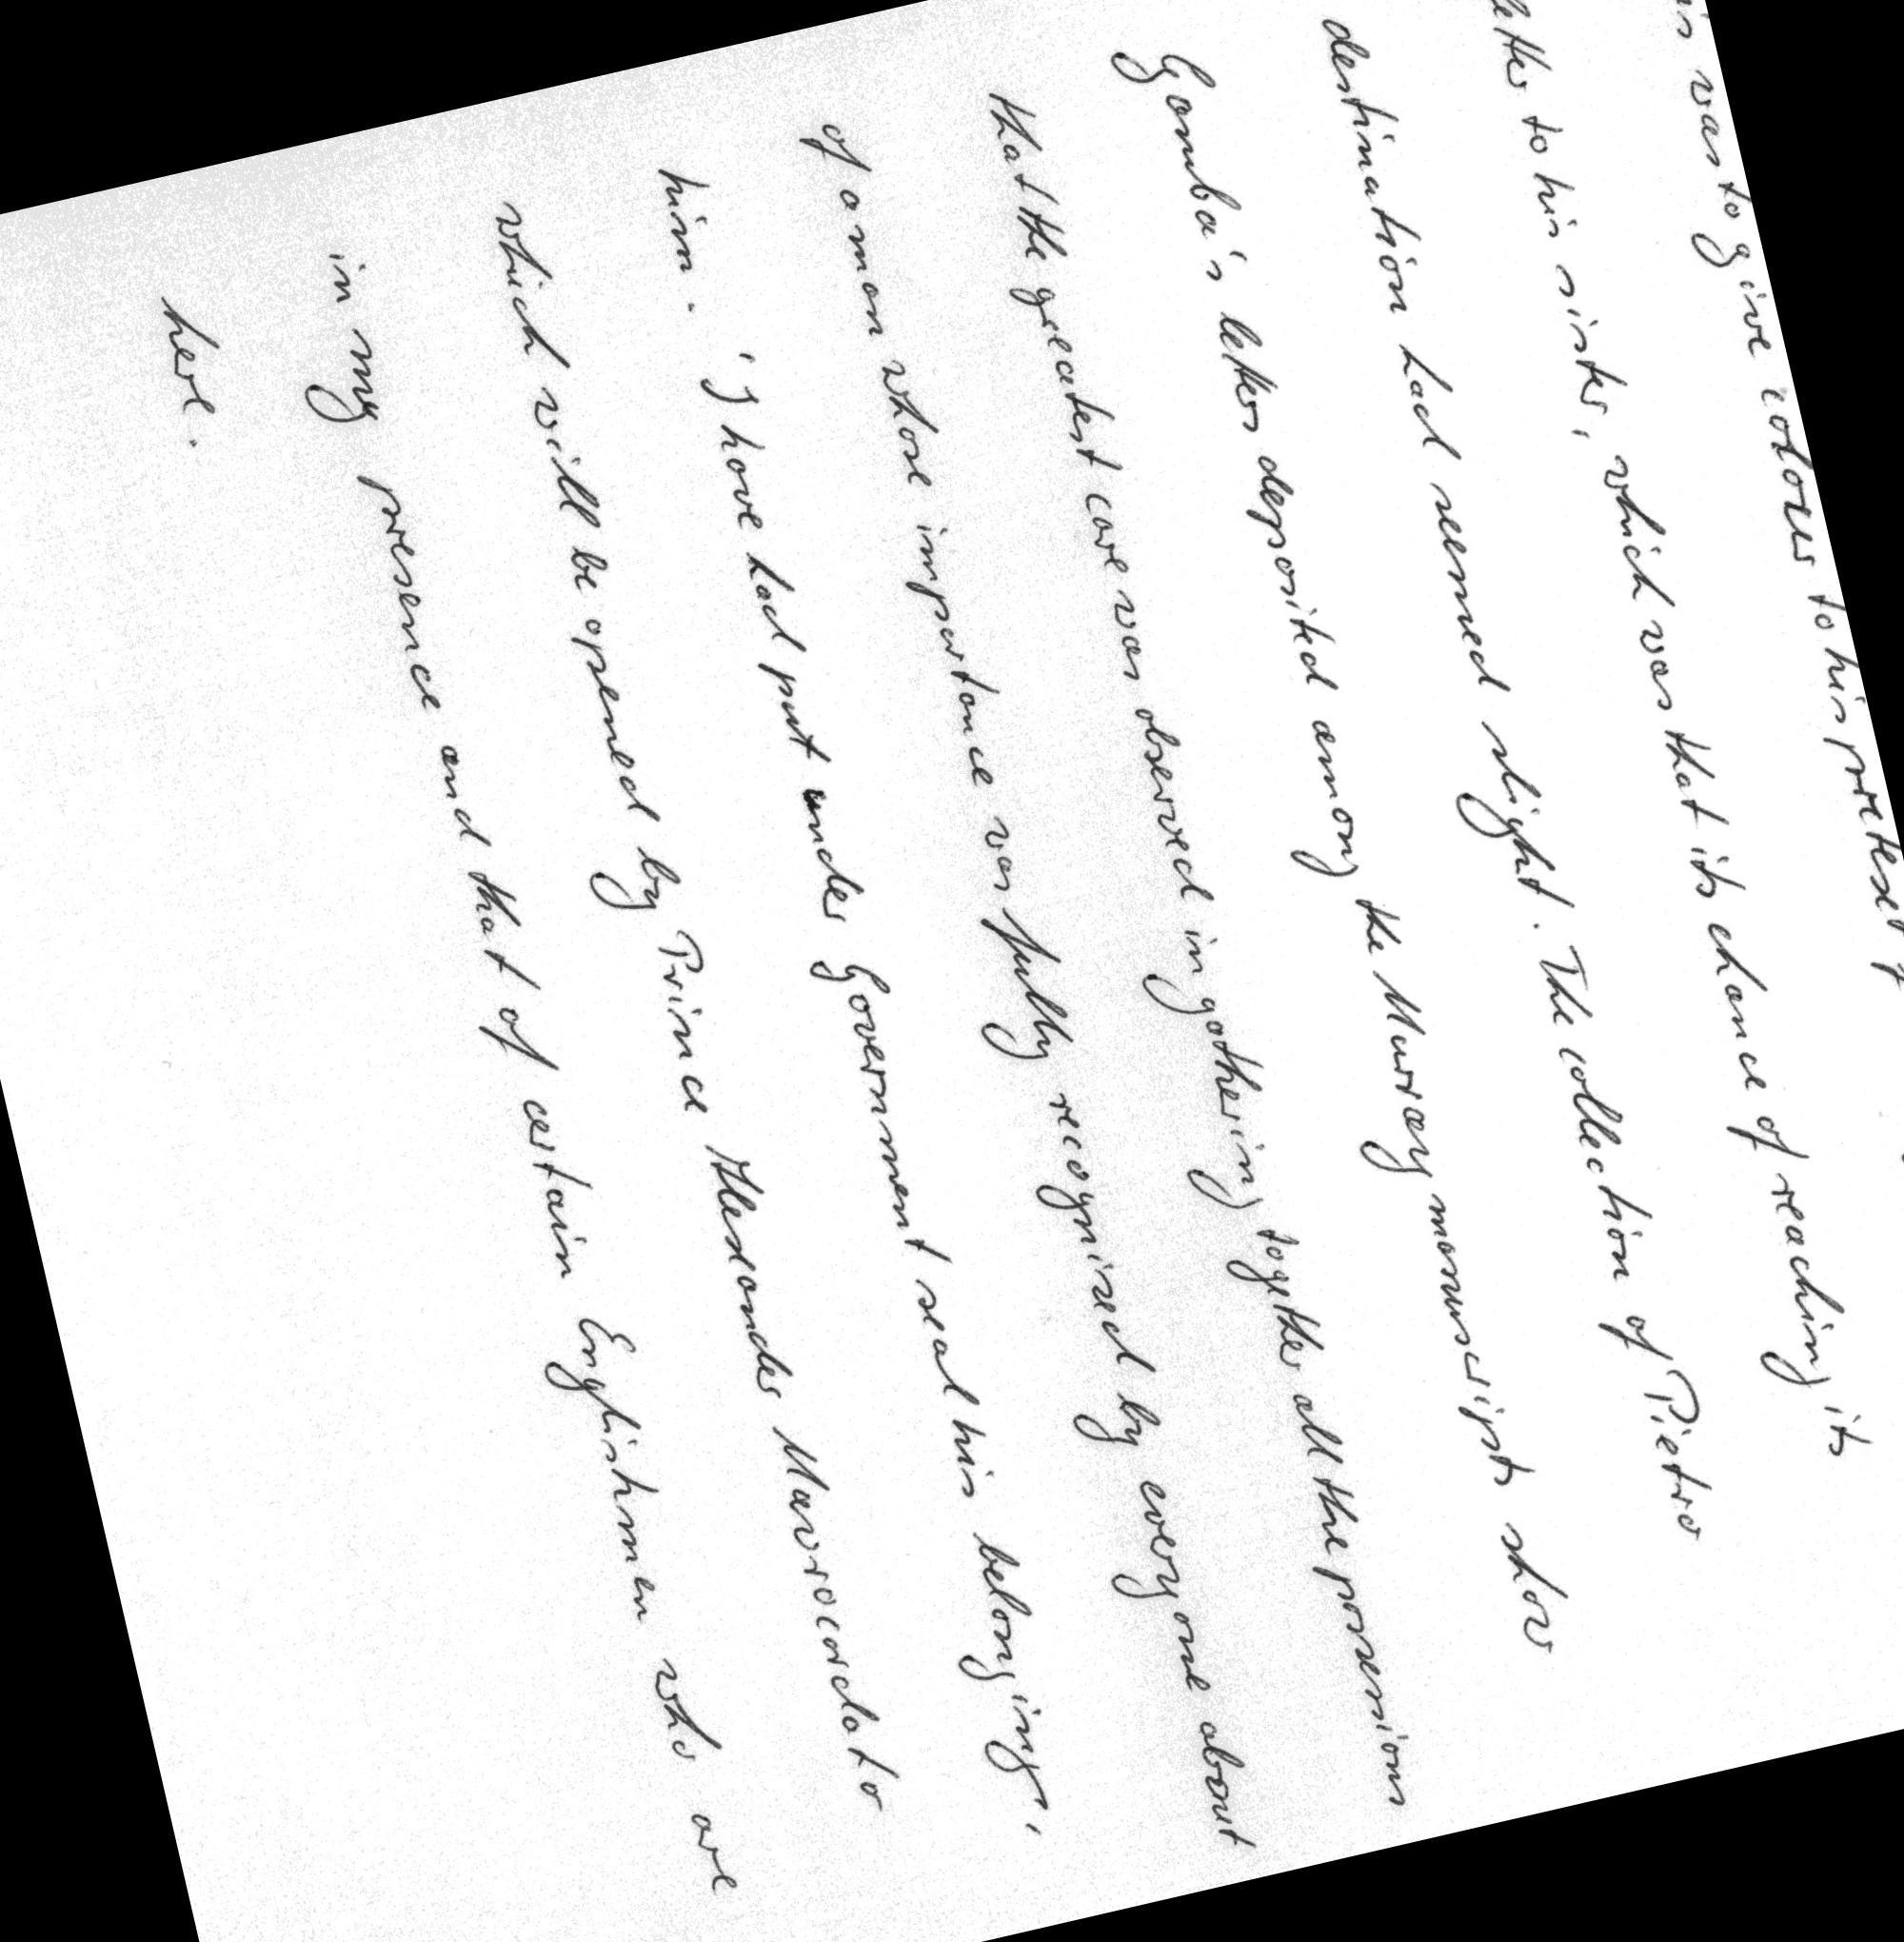 was to give colour to his pretext
to his sister, which was that its chance of reaching its
destination had seemed slight. The collection of Pietro
Gamba's letters deposited among the Murray manuscripts show
that the greatest care was observed in gathering together all the possessions
of a man whose importance was fully recognized by everyone about
him. 'I have had put under Government seal his belongings,
which will be opened by Prince Alexander Mavrocordato
in my presence and that of certain Englishmen who are
here.